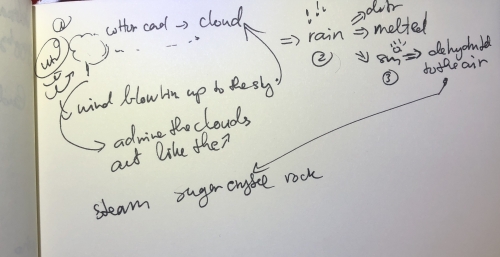 cotton cand → cloud
!!!
⇒ rain ⇒ melted
② 
sun ⇒ dehydrated
③ to the air
wind blow him up to the sky.
admire the clouds
act like the ↗
steam sugar crystle rock